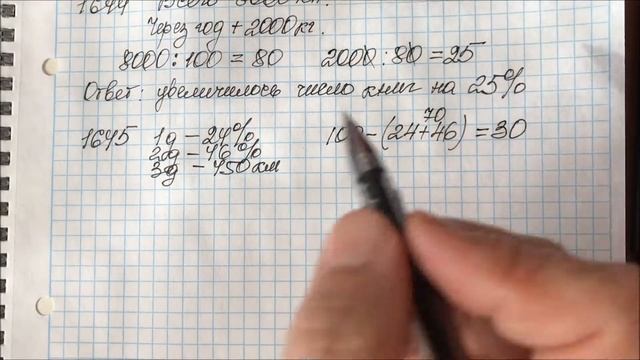 1644 Всего 8000 кн.
Через год + 2000 кг.
8000 : 100 = 80 2000 : 80 = 25
Ответ: увеличилось число книг на 25%
70
1645 1д – 24% 100 – (24+46) = 30
2д – 46%
3д – 450 км